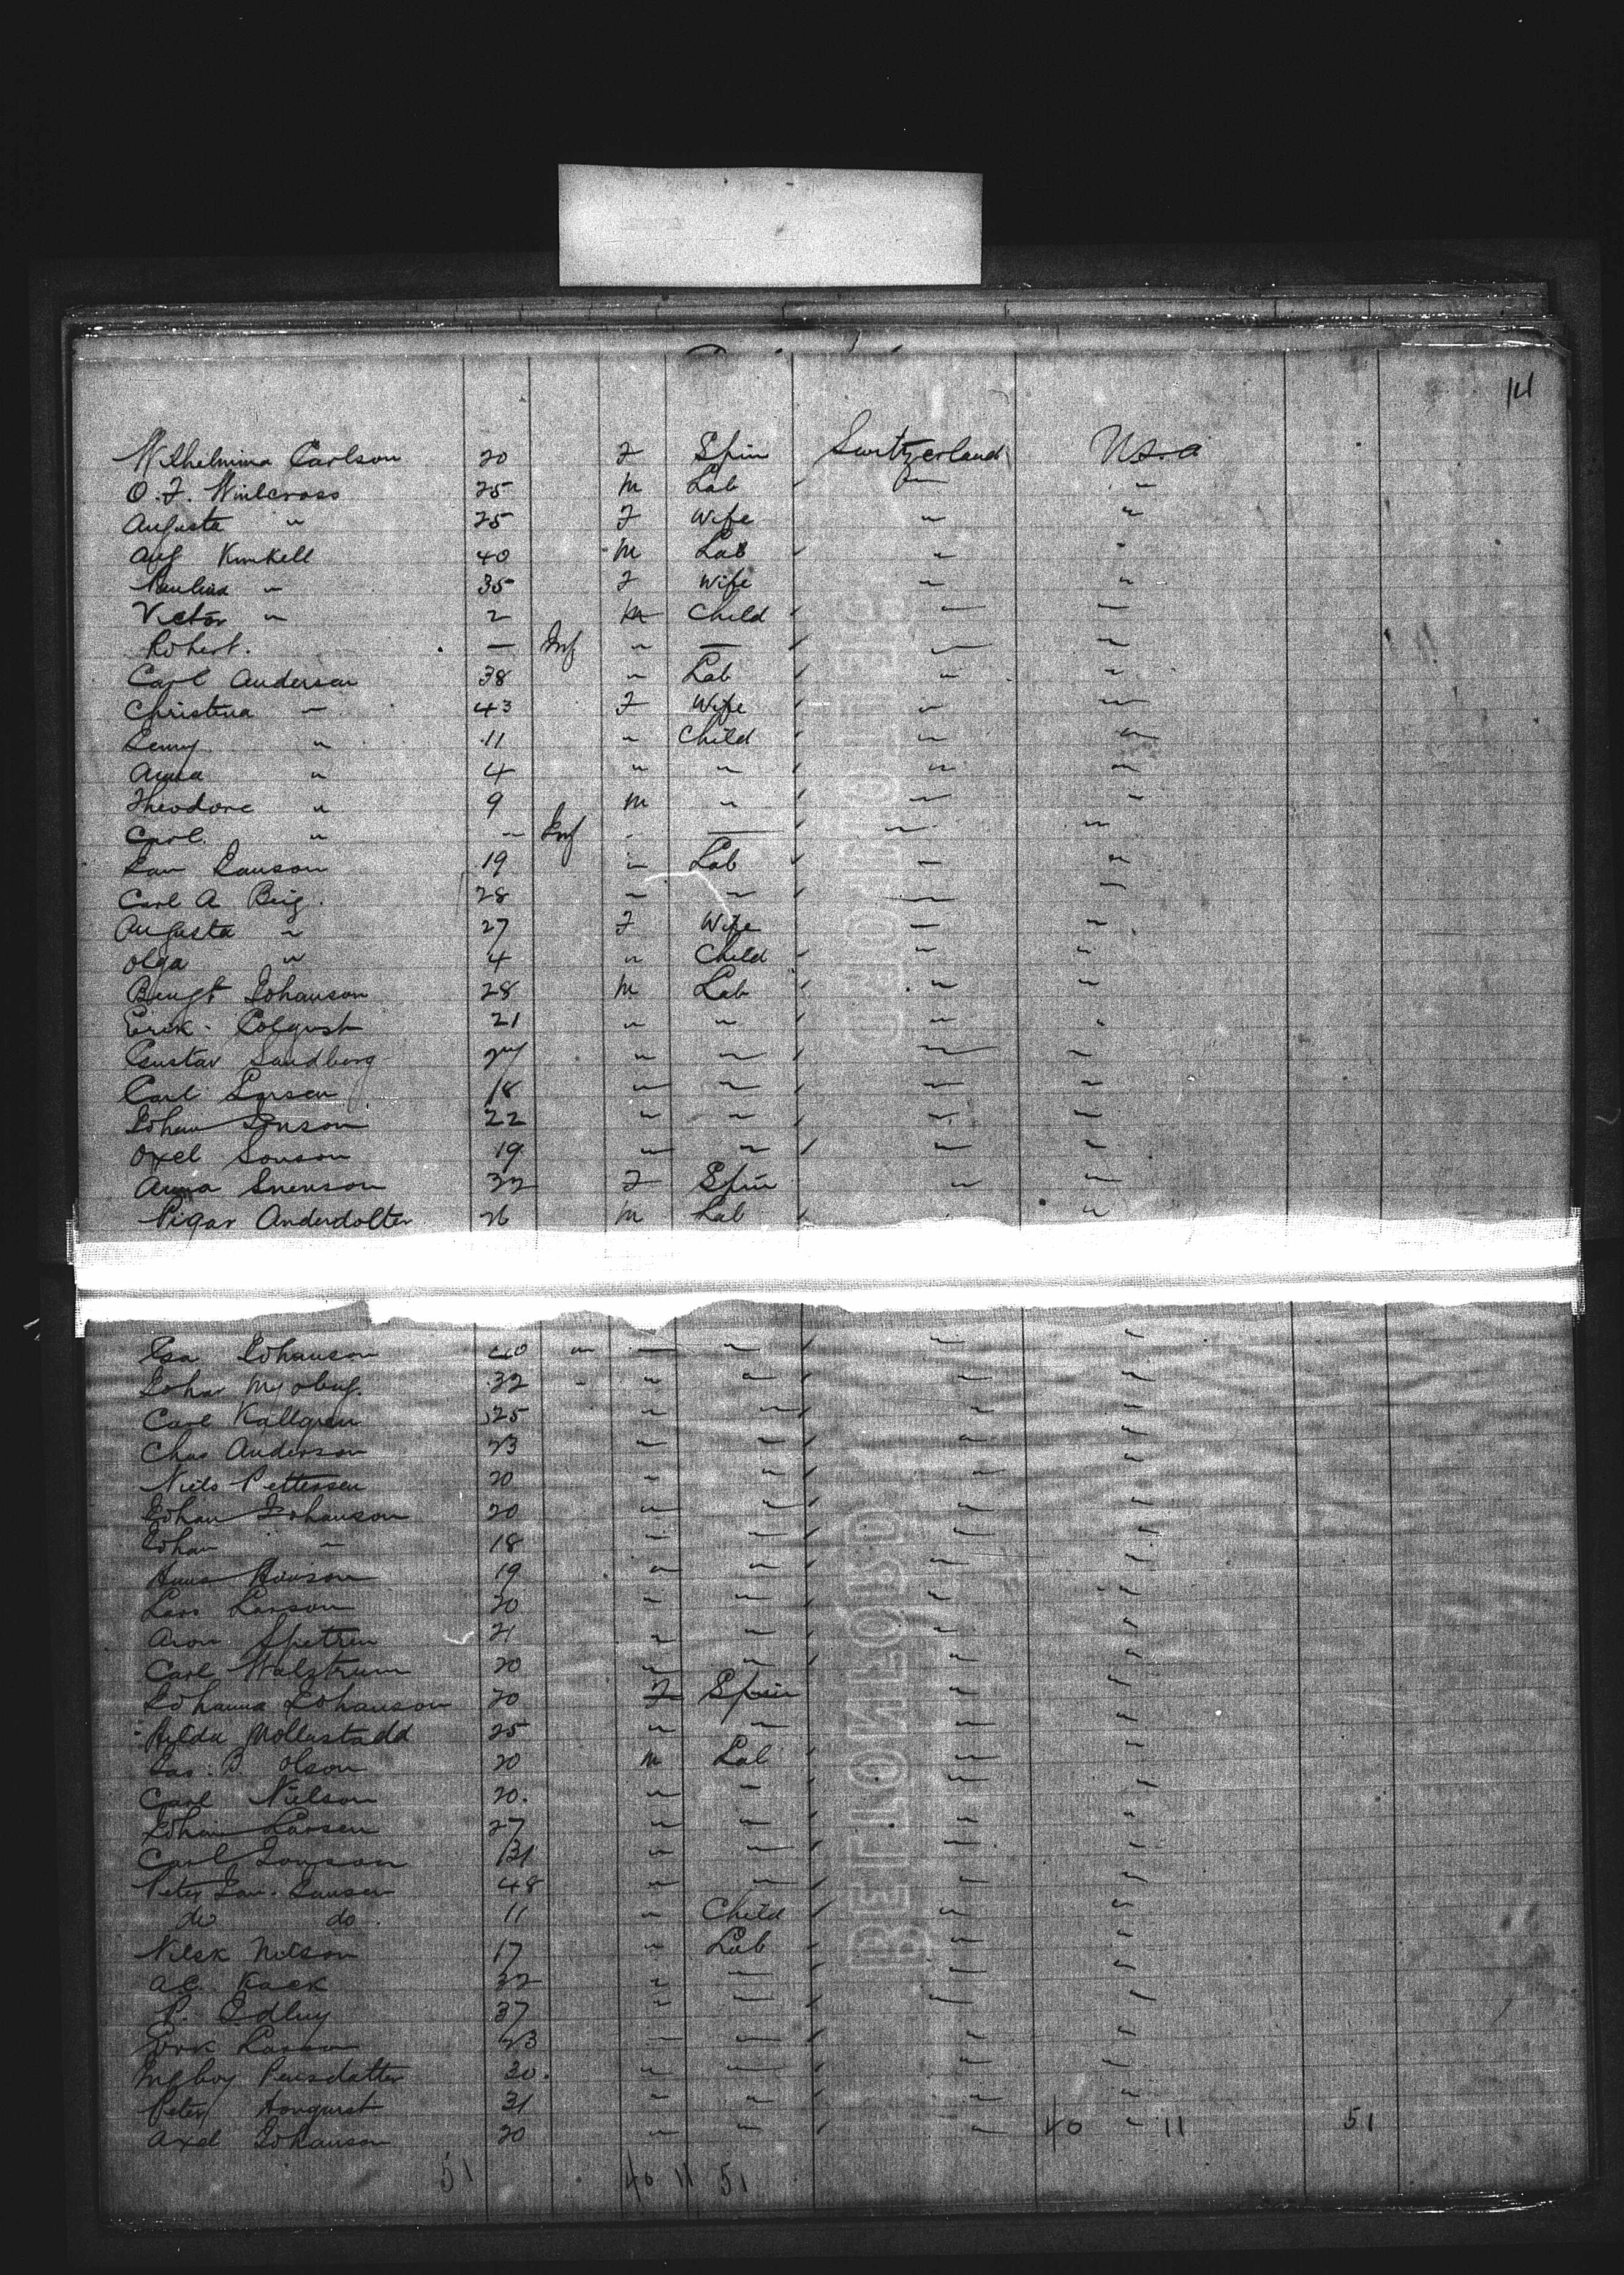 141
Wilhelmina Carlson 20 F Spin Switzerland U.S.a
O.F. Winlcross 25 M Lab " "
Augusta " 25 F Wife " "
Aug Kunkell 40 M Lab " "
Paulina " 35 F Wife " "
Victor " 2 M Child " "
Robert. — Inf " — " "
Carl Andersen 38 " Lab " "
Christina " 43 F Wife " "
Lenny " 11 " Child " "
Anna " 4 " " " "
Theodore " 9 M " " "
Carl " " Inf " — " "
19 " Lab " "
Carl A Berg. 28 " " " "
Augusta " 27 F Wife " "
Olga " 4 " Child " "
Bengt Johanson 28 M Lab " "
Erik 21 " " " "
Gustav Sandberg 24 " " " "
Carl Larsen 18 " " " "
Johan Jonson 22 " " " "
Oxel Jonson 19 " " " "
Anna Svenson 32 F Spin " "
Anderdolter 26 M Lab "
Johanson 40 " " " " "
Johan 32 " " " " "
Carl Kallgren 25 " " " "
Chas Anderson 23 " " " "
Niels Pettersen 20 " " " "
Johan Johanson 20 " " " "
Johan " 18 " " " "
19 " " " "
Lars Larson 20 " " " "
Aron 21 " " " "
Carl Walztrum 20 " " " "
Johanna Johanson 20 F Spin " "
Hilda Mollustadd 25 " " " "
B. Olson 20 M Lab " "
Carl Nielson 20. " " " "
Johan Larsen 27 " " " "
Carl Jonson 31 " " " "
Peter Jan. Jansen 48 " " " "
do do. 11 " Child " "
Nelson 17 " Lab " "
A.C. Kack 32 " " " "
P. 37 " " " "
Erik Larson 23 " " " "
Ingboy Persdatter 30. " " " "
Peter 31 " " " "
Axel Johanson 20 " " " 40 " 11 51
51 40 11 51